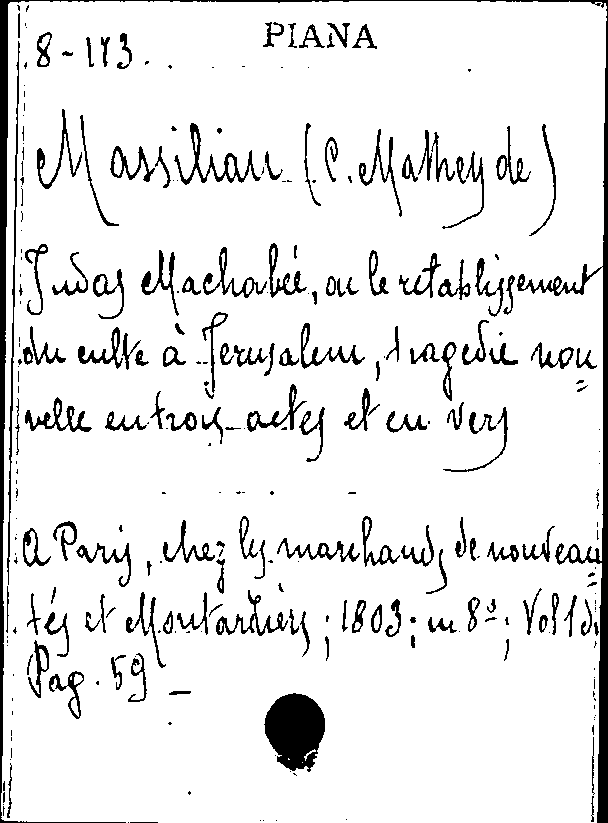 PIANA
8-173.
Massilian (C. Mathey de)
Judas Machabée, ou le rétablissement
du culte à Jerusalem, tragedie nou=
velle en trois actes et en vers
A Paris, chez les marchands de nouveau=
tés et Montardiers; 1803; in 8º; Vol 1 di
Pag. 59